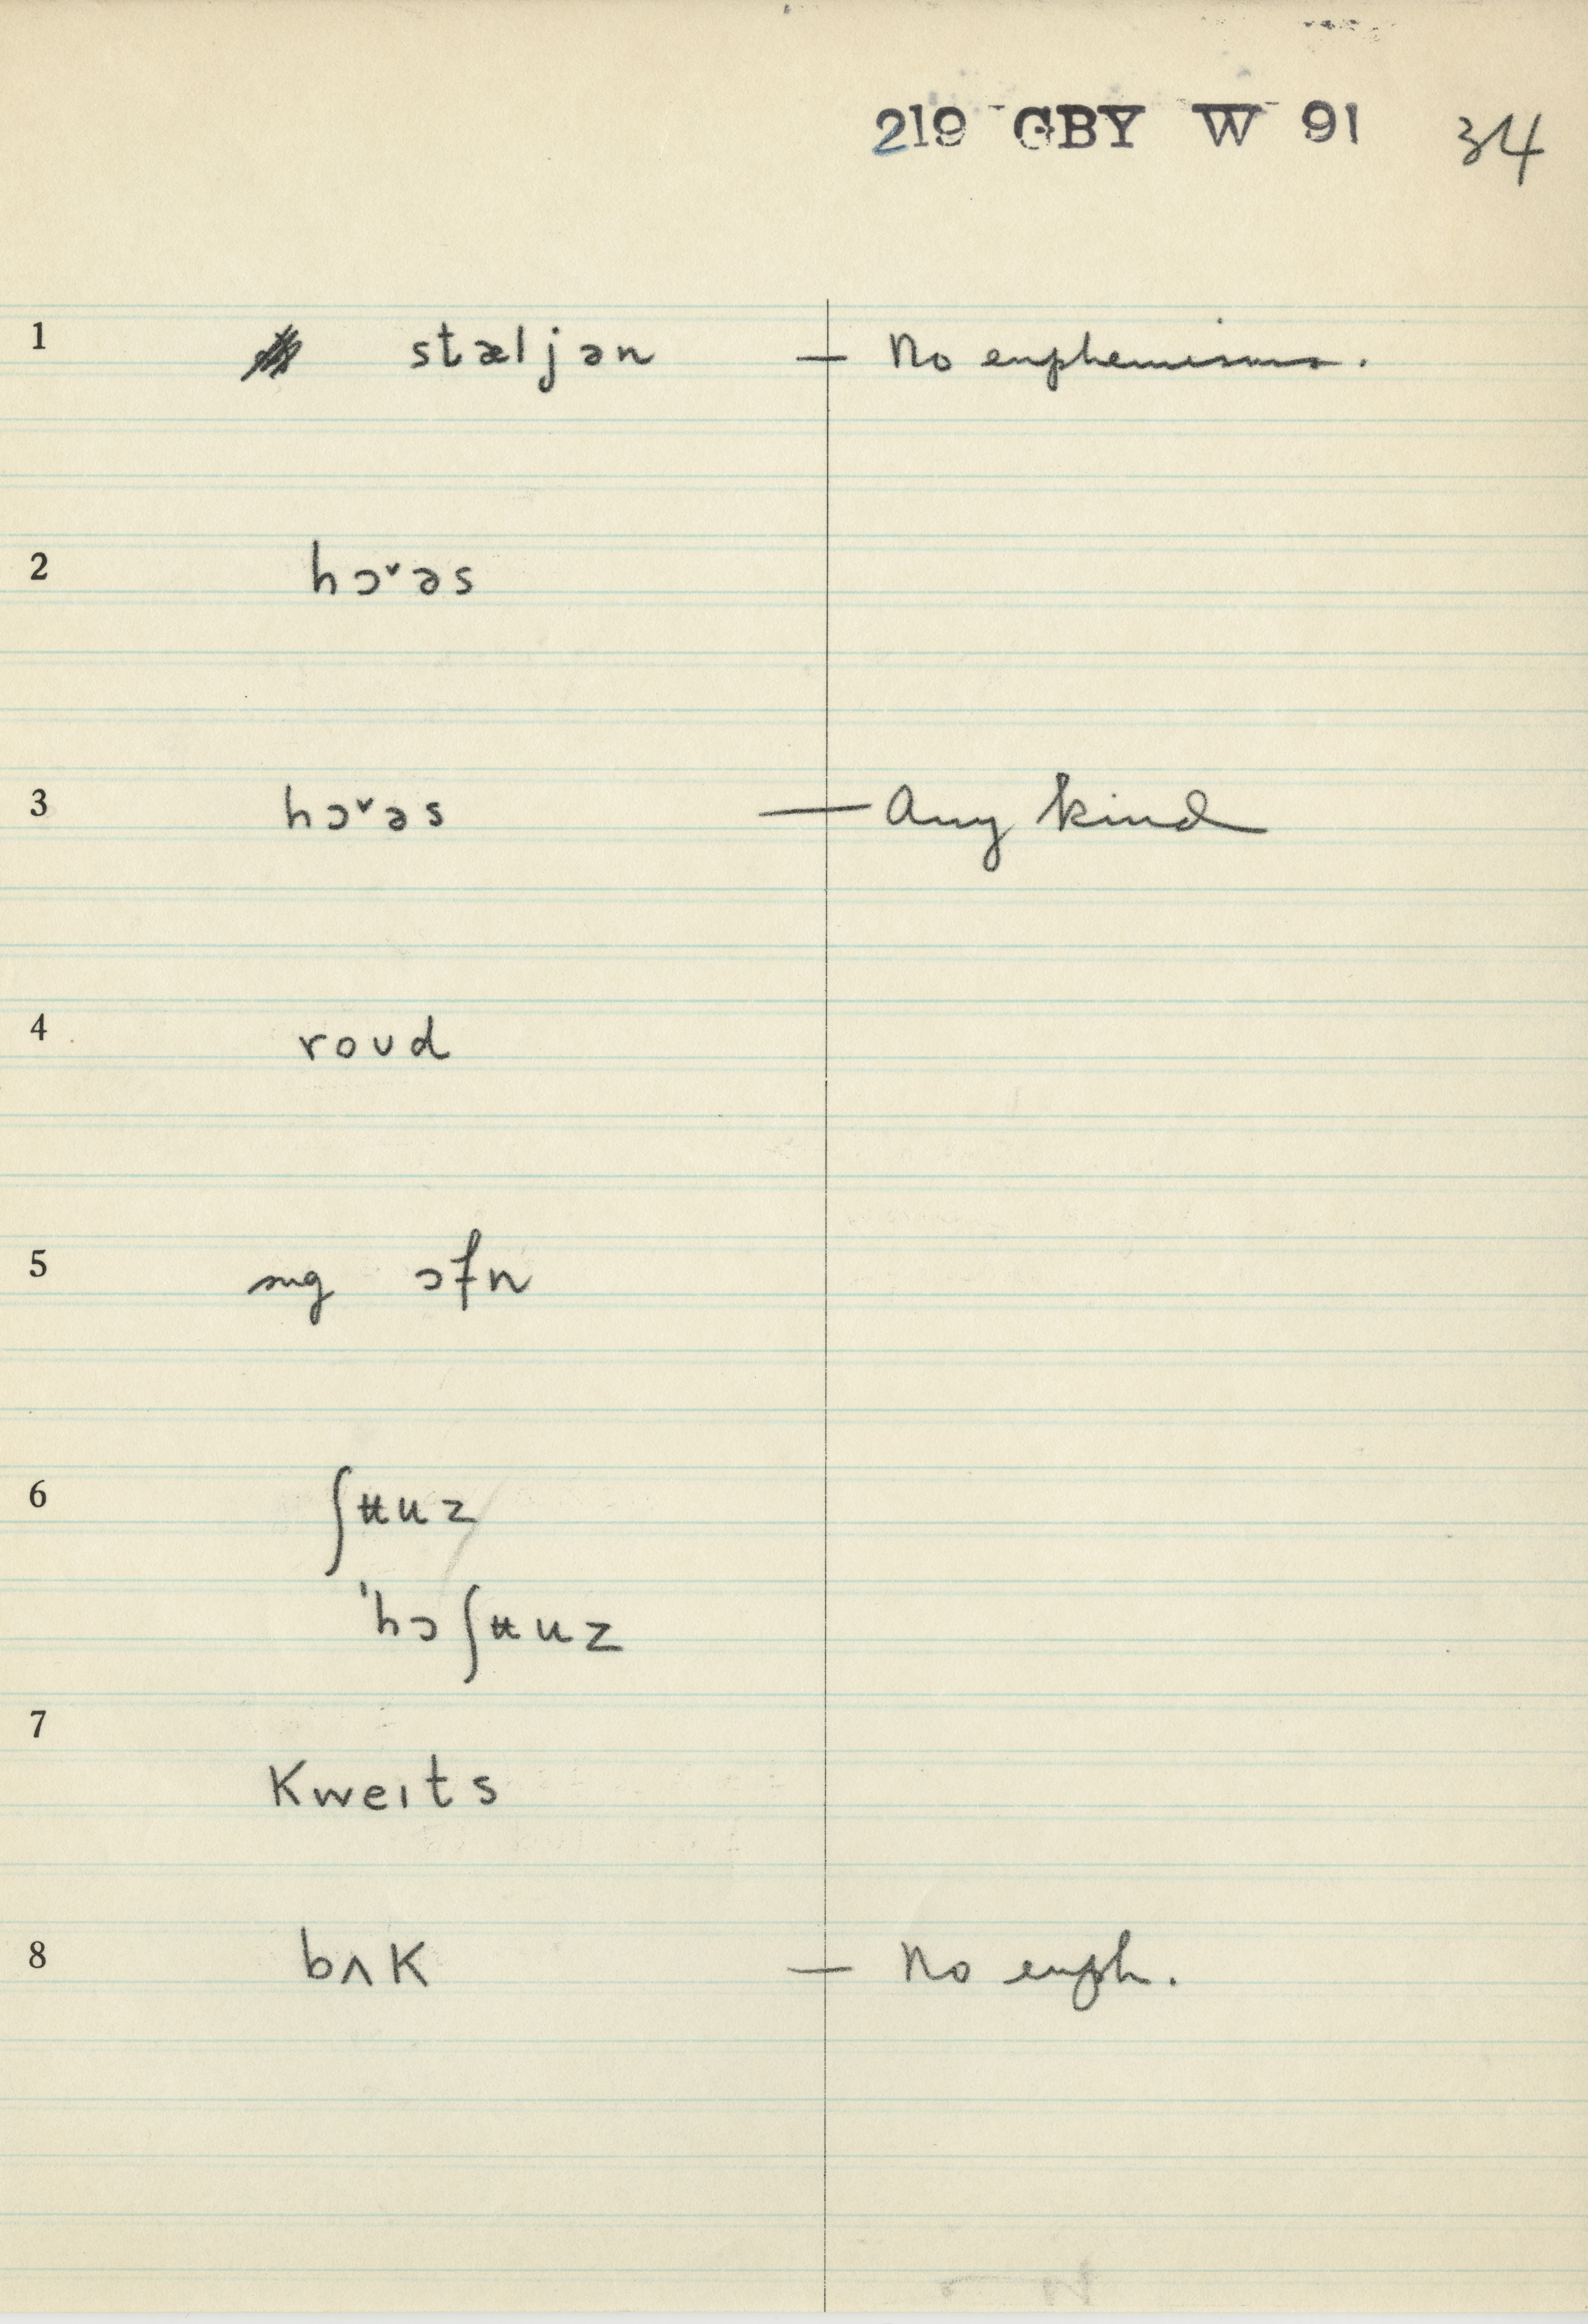 219 GBY W 91 34
1 stæljən — No euphemisms.
2 hɔˇəs
3 hɔˇəs — Any kind
4 roʊd
5 ɔfn
6 ʃʉuz
ˈhɔʃʉuz
7 Kweɪts
8 bʌK — No euph.